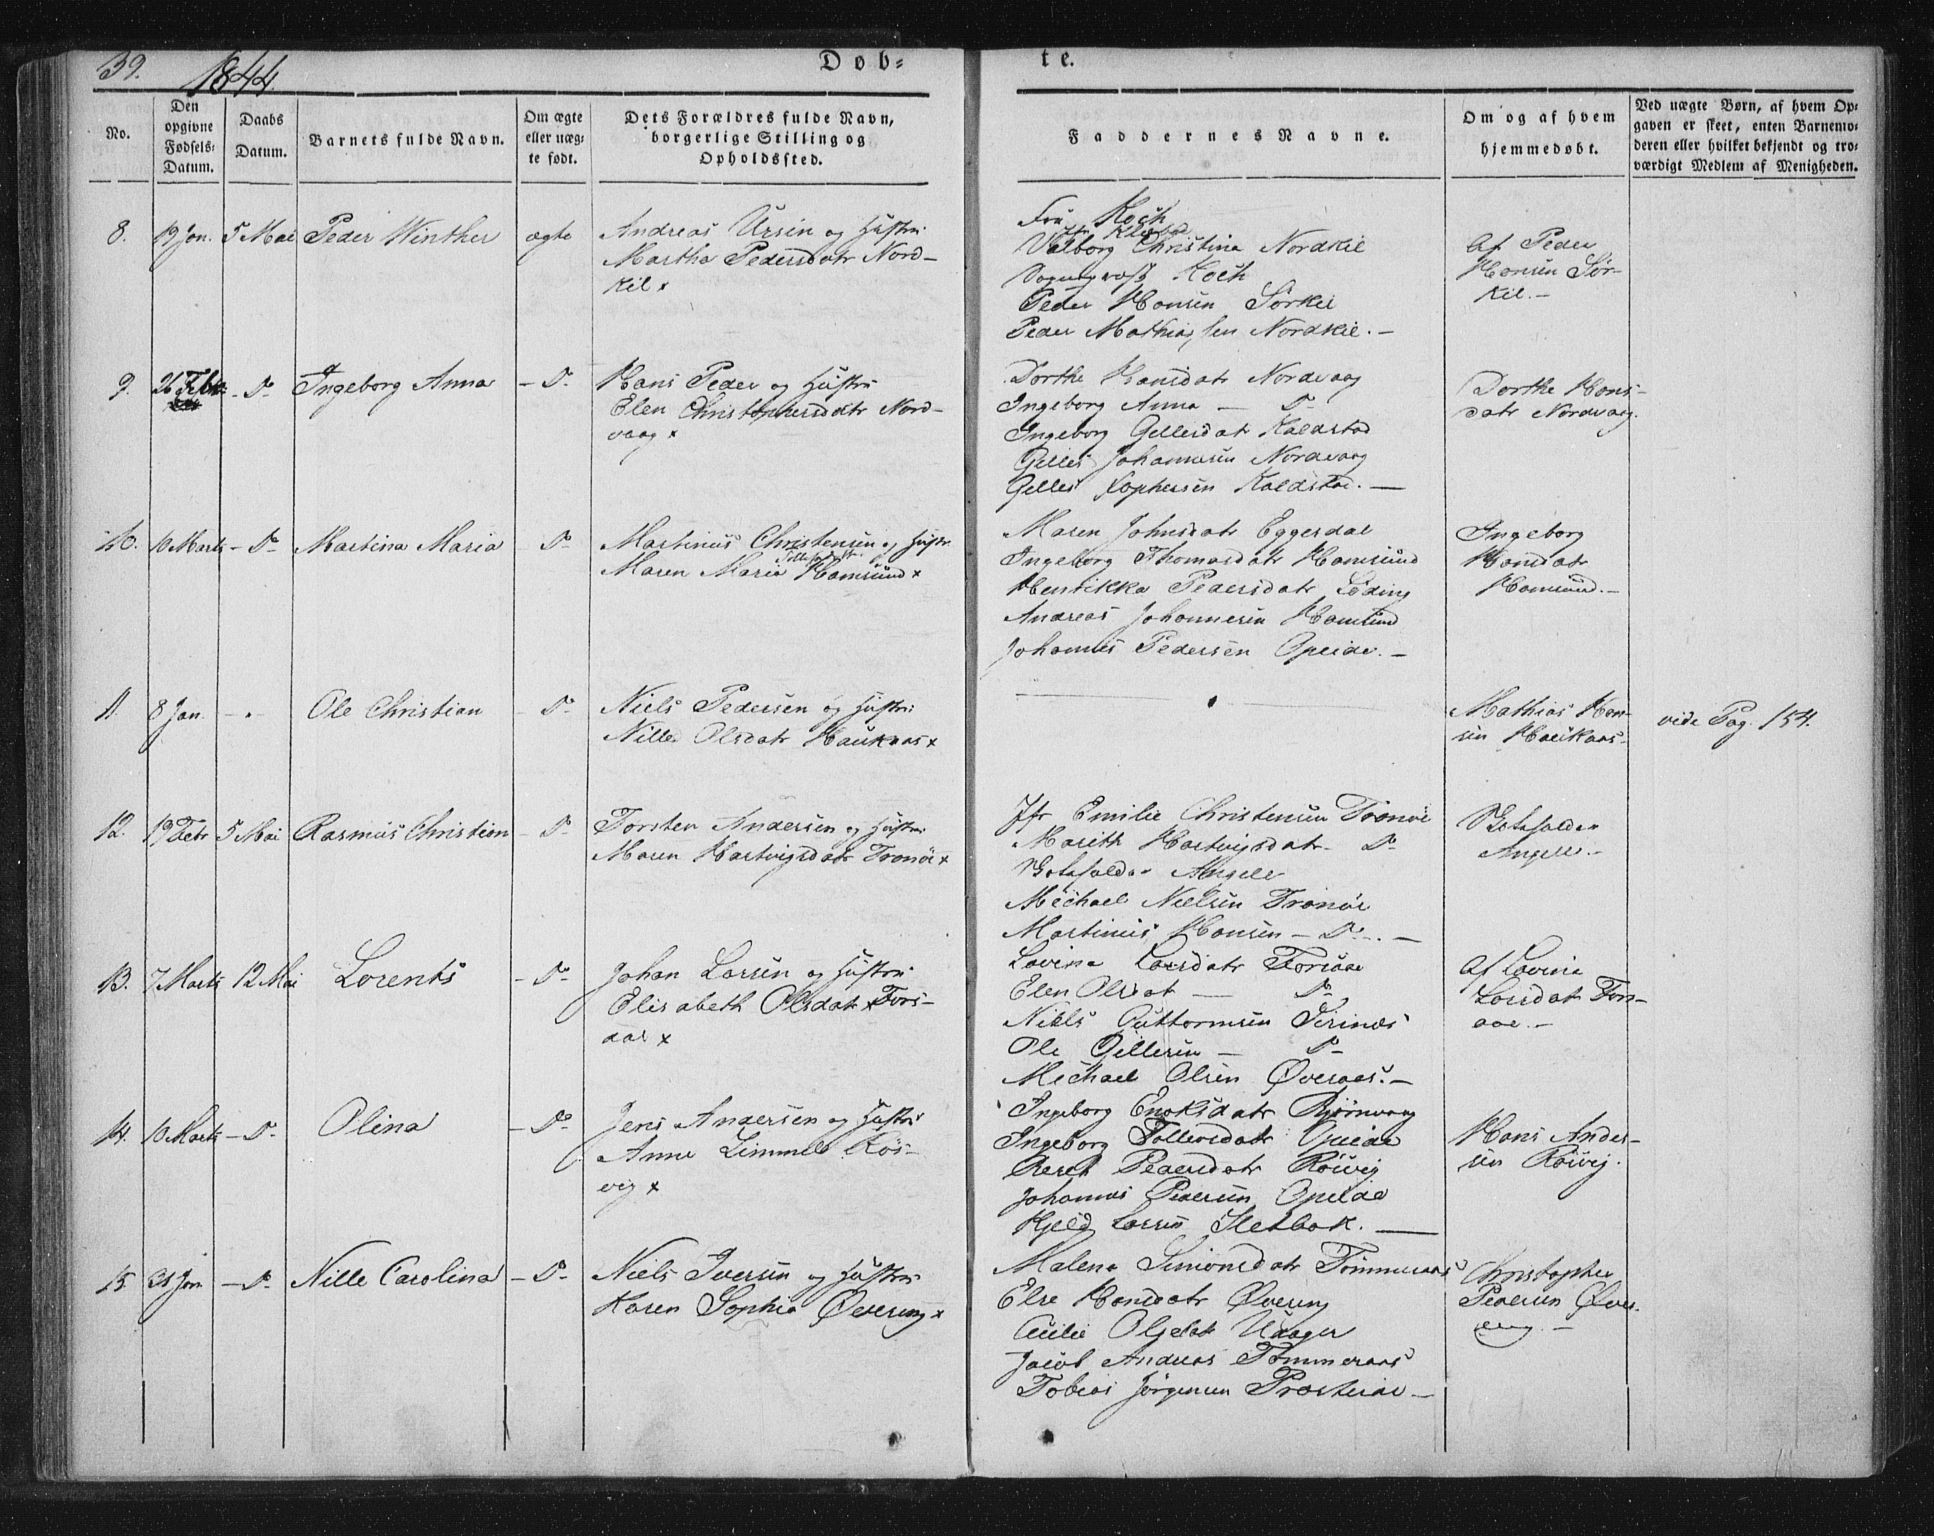 39.
1844.
Døb-
te.
No.
Den
opgivne
Fødsels-
Datum.
Daabs
Datum.
Barnets fulde Navn.
Om ægte
eller uæg-
te født.
Dets Forældres fulde Navn,
borgerlige Stilling og
Opholdssted.
Faddernes Navne.
Om og af hvem
hjemmedøbt.
Ved uægte Børn, af hvem Op-
gaven er skeet, enten Barnemo-
deren eller hvilket bekjendt og tro-
værdigt Medlem af Menigheden.
8. 19 Jan. 5 Mai Peder Winther ægte
Andreas Ursin og Hustru
Martha Pedersdatr Nord-
kil x
Fru Koch
Valborg Christina Nordkil
Koch
Peder Hansen Sørkil
Peder Mathiassen Nordkil. —
Af Peder
Hansen Sør-
kil. —
9. 26 Febr. - Do Ingeborg Anna - Do
Hans Peder og Hustru
Elen Christophersdatr Nord-
vaag x
Dorthe Hansdatr Nordvaag
Ingeborg Anna — Do
Ingeborg Gellesdatr Kaldstad
Gelles Johannesen Nordvaag
Gelles Xophersen Kaldstad. —
Dorthe Hans-
datr Nordvaag.
10. 10 Marts - Do Martina Maria - Do
Martinus Christensen og Hustr
Maren Maria Hamsund x
Maren Johnsdatr Eggesdal
Ingeborg Thomasdatr Hamsund
Henrikka Pedersdatr Løding
Andreas Johannesen Hamsund
Johannes Pedersen Opeide. —
Ingeborg
Hansdatr
Hamsund. —
11. 8 Jan. - . Ole Christian - Do
Niels Pedersen og Hustru
Nille Olsdatr Hauknas x
Mathias Han-
sen Haukaas.
vide Pag. 154.
12. 19 Febr 5 Mai Rasmus Christian - Do
Torsten Andersen og Hustru
Maren Hartvigsdatr Tranøe x
Jfr Emilie Christensen Tranøe
Marith Hartvigsdatr - Do
Angell
Michael Nielsen Tranøe
Martinus Hansen - Do. —
Angell. —
13. 7 Marts 12 Mai Lorents - Do
Johan Larsen og Hustru
Elisabeth Olsdatr Fors-
aae x
Lavina Larsdatr Forsaae
Elen Olsdat — Do
Niels Guttormsen
Ole Gellesen — Do
Michael Olsen Øveraas. —
Af Lavina
Larsdatr Fors-
aae. —
14. 10 Marts - Do Olina - Do
Jens Andersen og Hustru
Anne Limmel Røs-
vig x
Ingeborg Enoksdatr Bjørnvaag
Ingeborg Tollevsdatr Opeide
Beret Pedersdatr Røsvig
Johannes Pedersen Opeide
Kjeld Larsen Sletbak. —
Hans Ander-
sen Røsvig.
15 31 Jan - Do Nille Carolina - Do
Niels Iversen og Hustru
Karen Sophia Øvereng x
Malena Simonsdatr Tømmeraas
Else Hansdatr Øvereng
Cecilie Olsdat
Jacob Andreas Tømmeraas
Tobias Jørgensen Presteide —
Christopher
Pedersen Øver-
eng. —